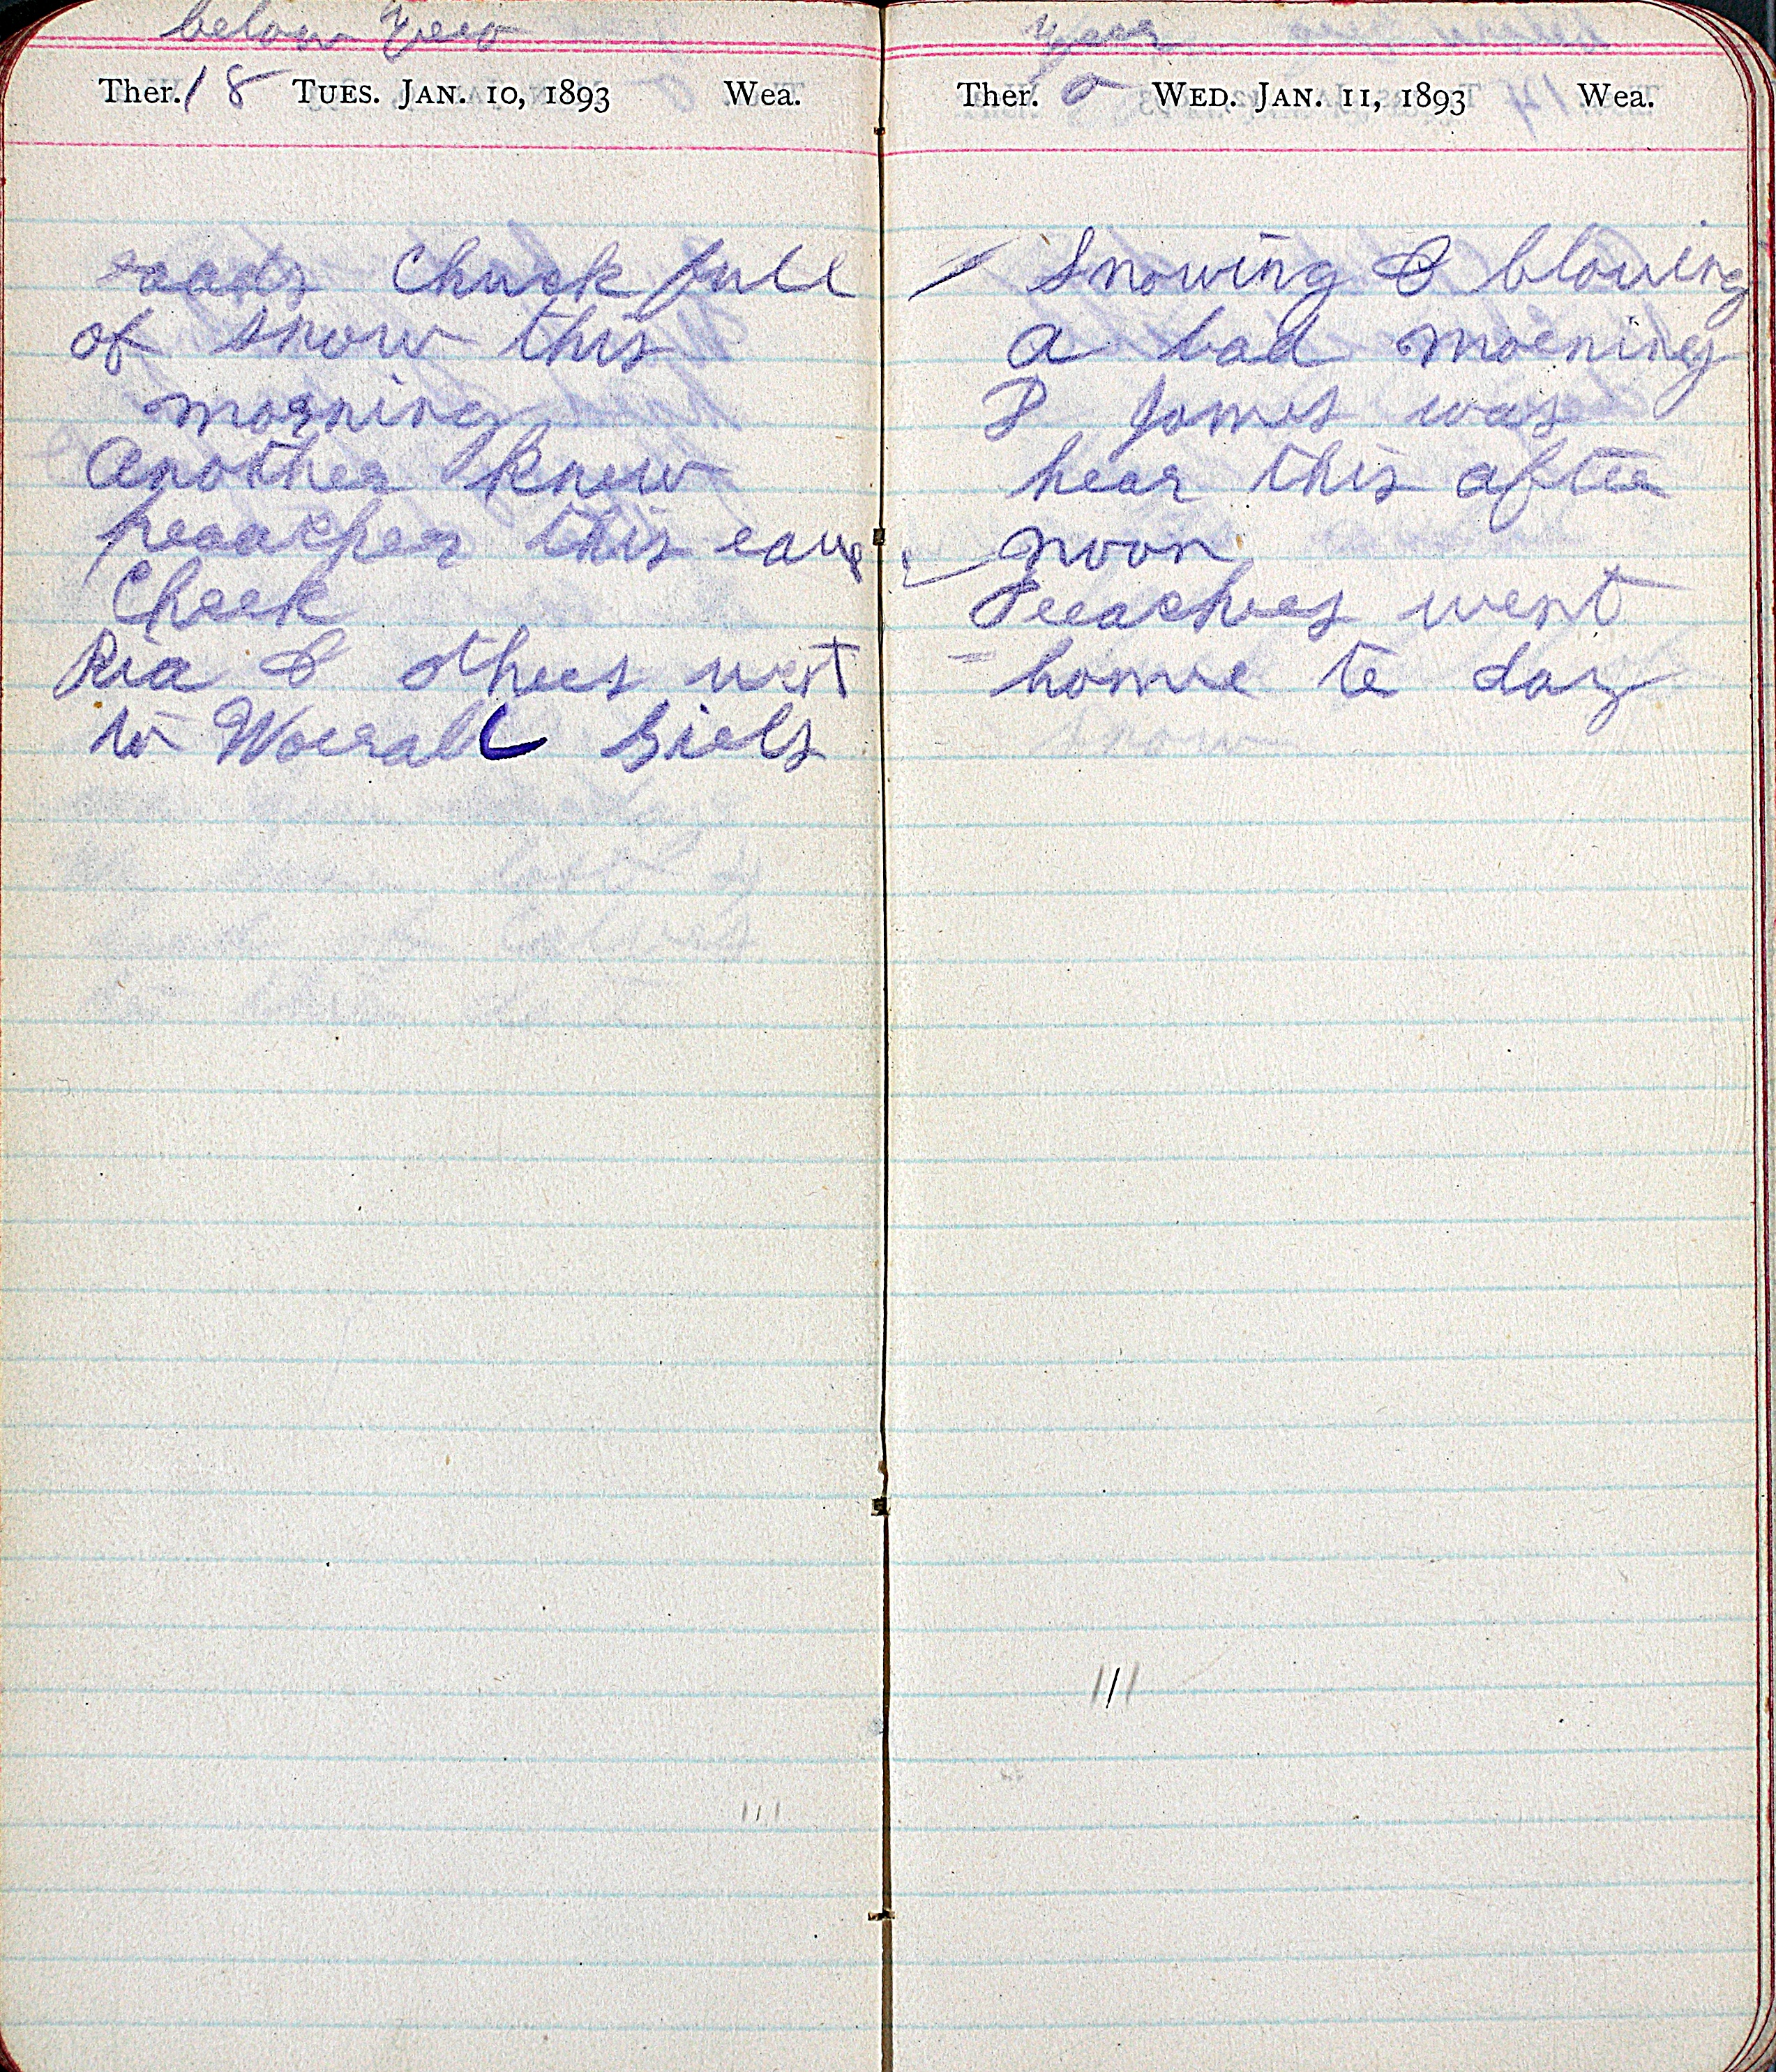 below zero
Ther. 18 TUES. JAN. 10, 1893 Wea.
roads Chuck full
of snow this
morning
Another knew
preacher this eavg
Cheek
Ria & others went
to Worrall Girls
zero
Ther. 0 WED. JAN. 11, 1893 Wea.
Snowing & blowing
a bad morning
P Jomes was
hear this after
noon
Preacher went
home to day
snow